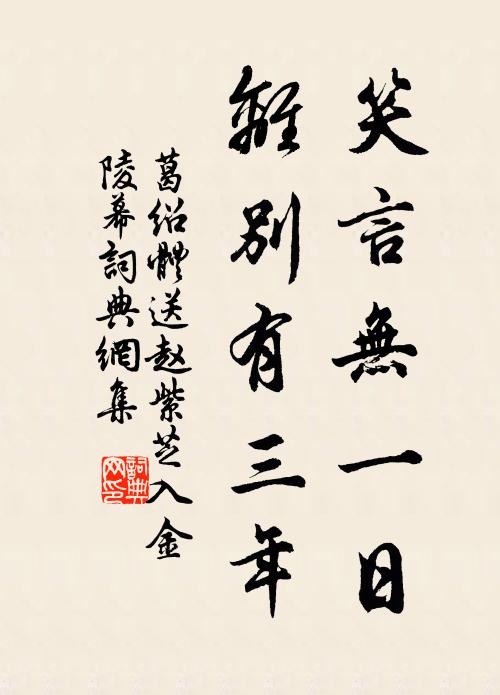 笑言無一日
離別有三年
葛绍體送赵紫芝入金
陵幕詞典網集
詞典
网印